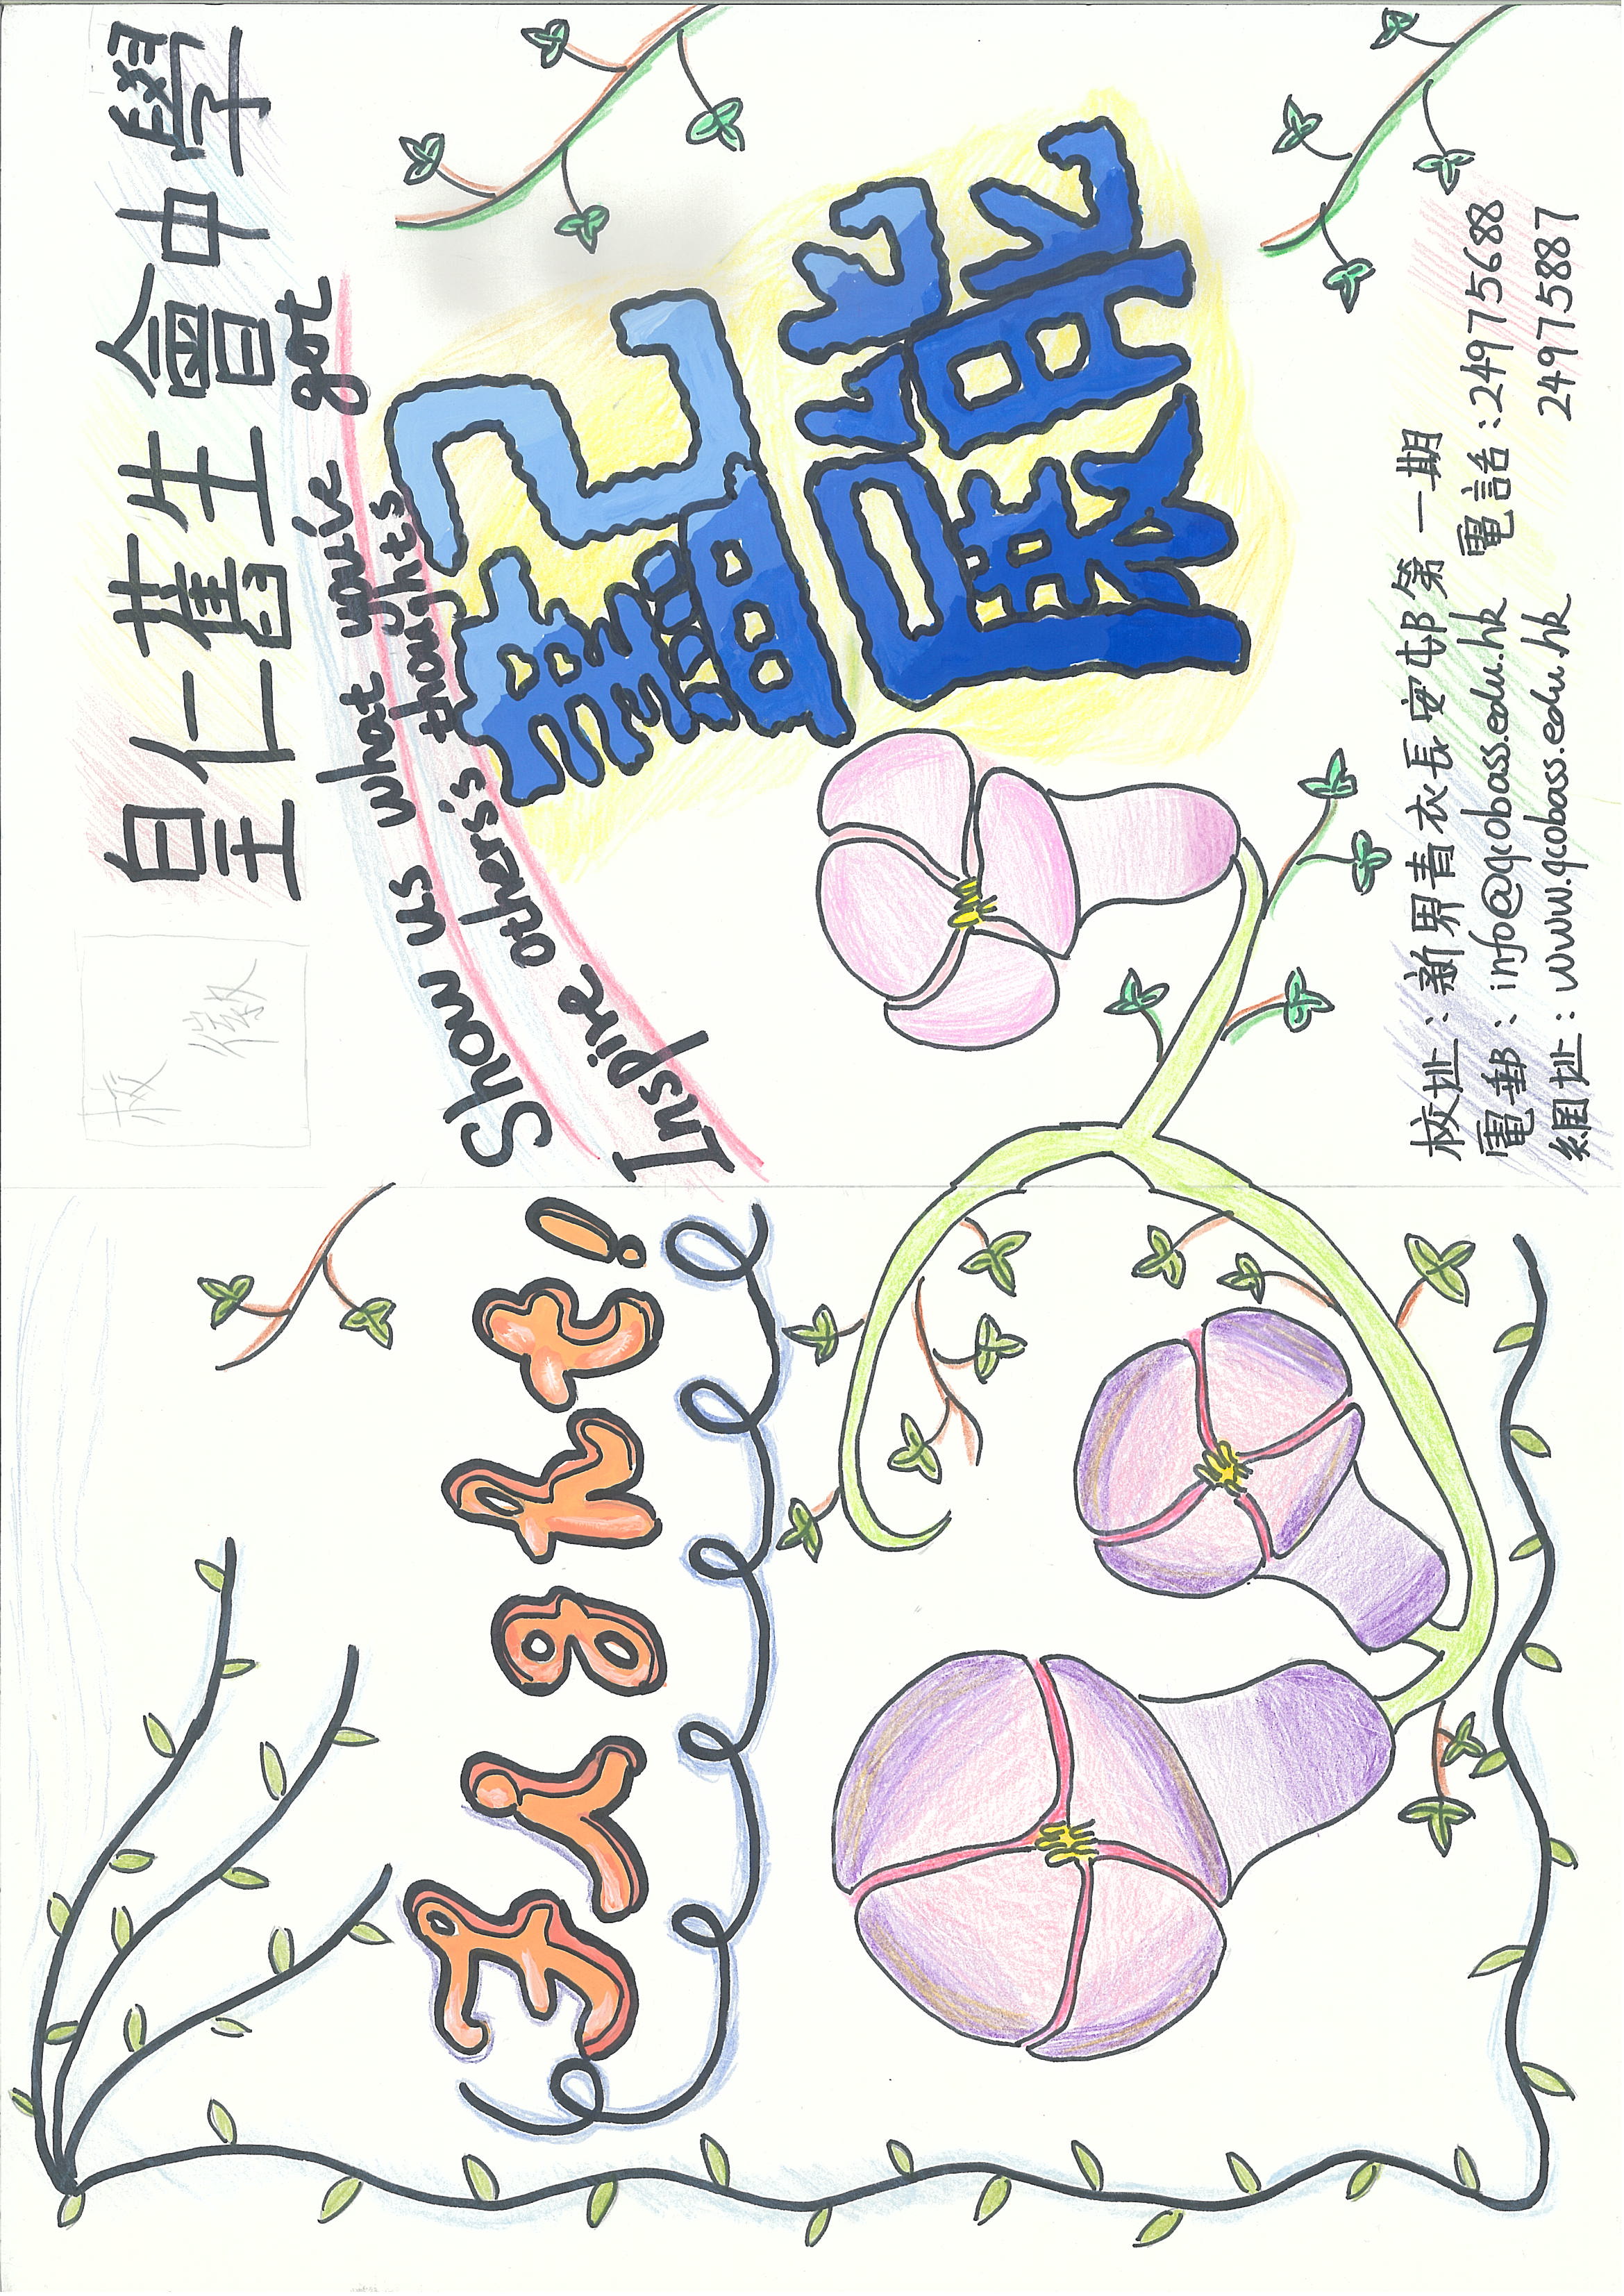 皇仁舊生會中學
校徽
Show us what you've got
Inspire others's thoughts
盡己
展能
校址：新界青衣長安邨第一期
電郵：info@qcobass.edu.hk 電話：24975688
網址：www.qcobass.edu.hk 24975887